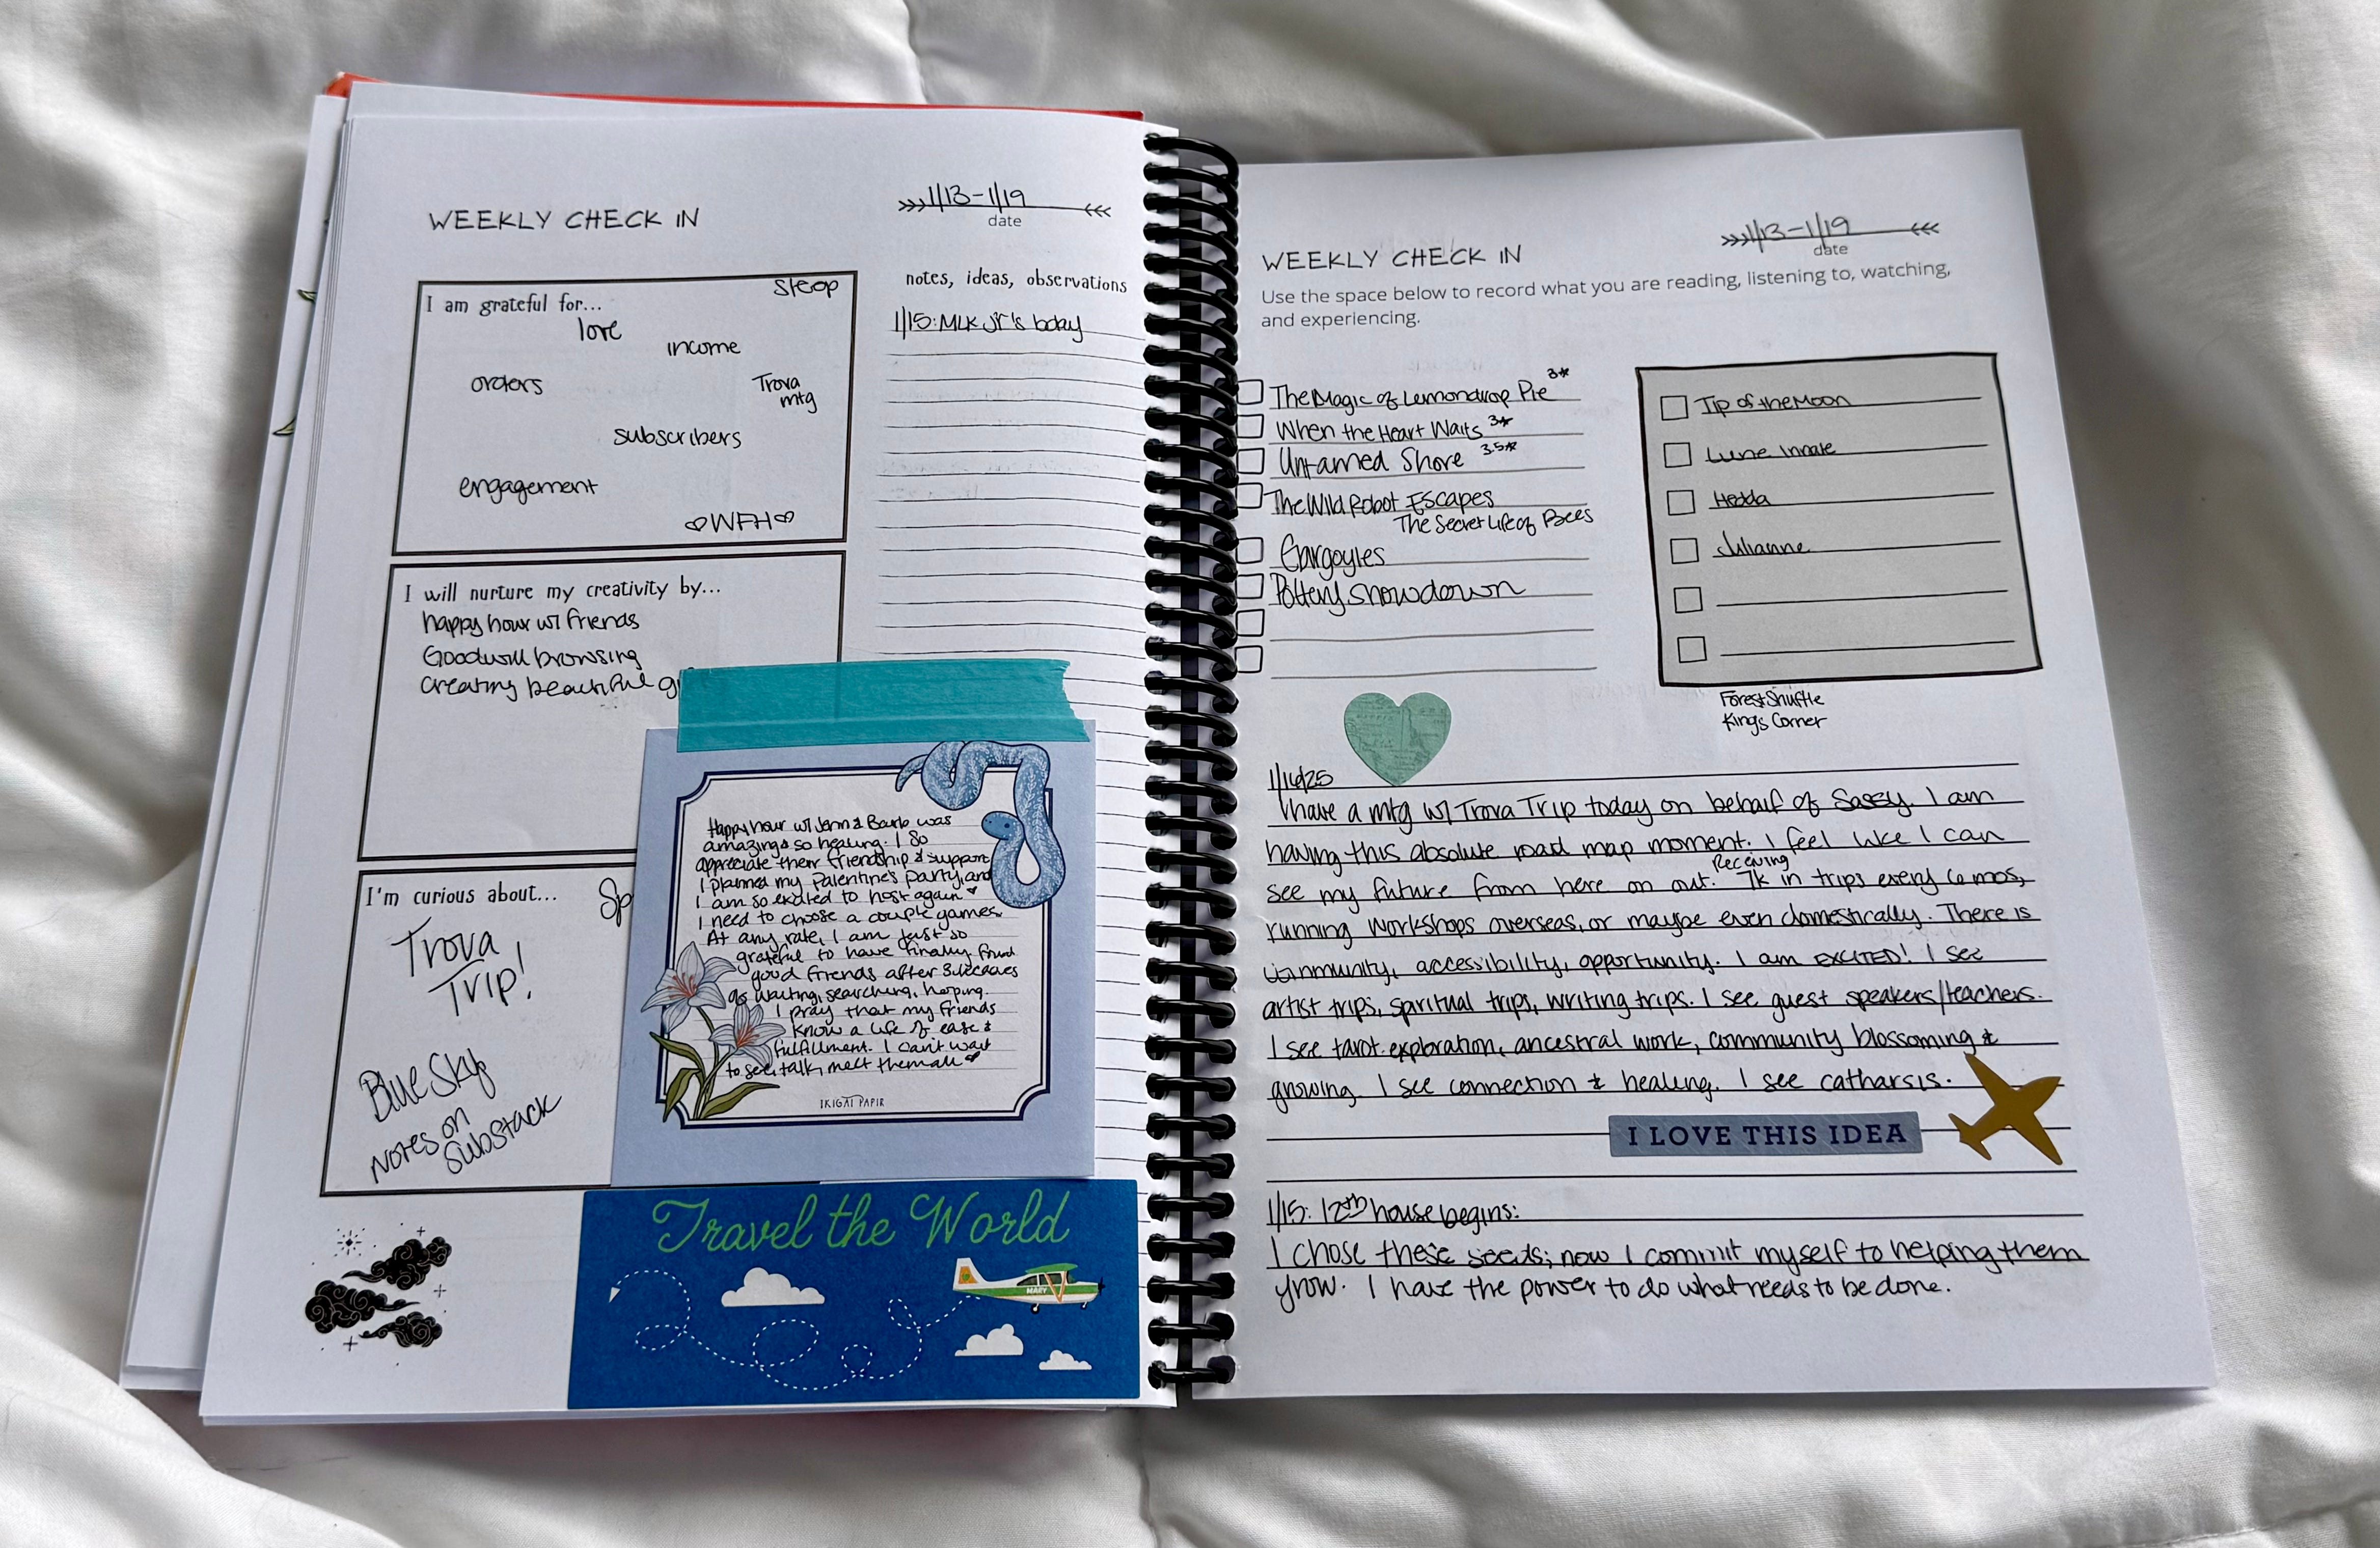 WEEKLY CHECK IN
1/13-1/19
date
I am grateful for...
sleep
love
income
orders
Trova
mtg
subscribers
engagement
WFH
notes, ideas, observations
1/15: MLK Jr's bday
I will nurture my creativity by...
happy hour w/ friends
Goodwill browsing
creating beautiful
I'm curious about...
Sp
Trova
Trip!
BlueSky
notes on
Substack
Happy hour w/ Jenn & Barb was
amazing & so healing. I so
appreciate their friendship & support
I planned my Palentine's party, and
I am so excited to host again
I need to choose a couple games.
At any rate, I am just so
grateful to have finally found
good friends after 3 decades
of waiting, searching, hoping.
I pray that my friends
know a life of ease &
fulfillment. I can't wait
to see, talk, melt them all
IKIGAI PAPIR
Travel the World
MARY
WEEKLY CHECK IN
1/13-1/19
date
Use the space below to record what you are reading, listening to, watching,
and experiencing.
The Magic of Lemondrop Pie 3*
When the Heart Waits 3*
Untamed Shore 3.5*
The Wild Robot Escapes
The Secret Life of Bees
Gargoyles
Pottery Showdown
Tip of the Moon
Lune Innate
Hedda
Julianne
Forest Shuffle
Kings Corner
1/16/25
I have a mtg w/ Trova Trip today on behalf of Sassy. I am
having this absolute road map moment. I feel like I can
see my future from here on out. Receiving 7k in trips every 6 mos,
running workshops overseas, or maybe even domestically. There is
community, accessibility, opportunity. I am EXCITED! I see
artist trips, spiritual trips, writing trips. I see guest speakers/teachers.
I see tarot exploration, ancestral work, community blossoming &
growing. I see connection & healing. I see catharsis.
I LOVE THIS IDEA
1/15: 12th house begins:
I chose these seeds; now I commit myself to helping them
grow. I have the power to do what needs to be done.